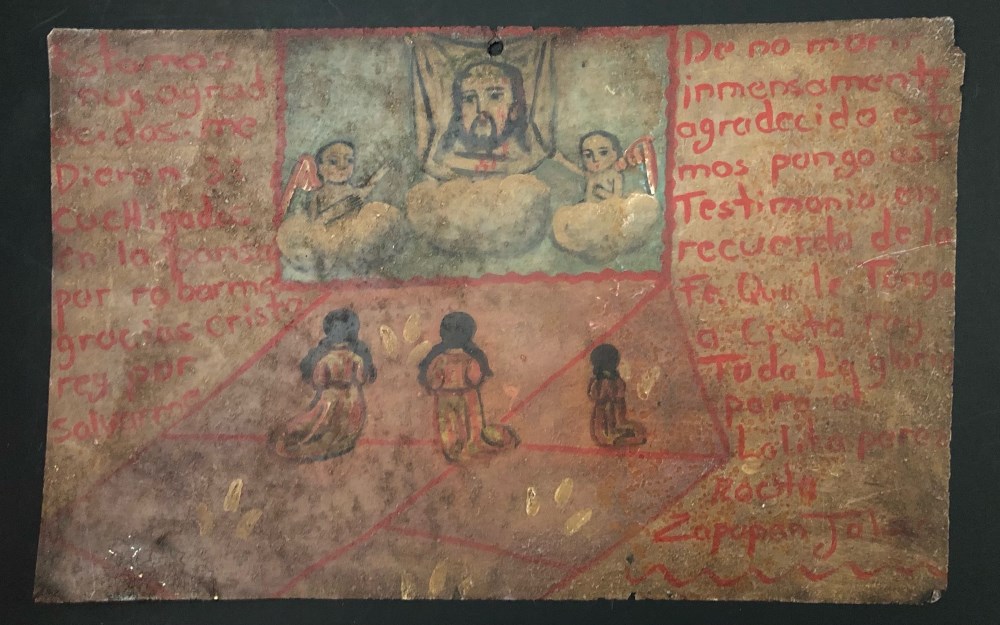 Estamos
muy agrad
ecidos me
Dieron 21
Cuchigadas
en la pansa
por robarme
gracias cristo
rey por
salvarme
De no morir
inmensamente
agradecido esta
mos pongo este
Testimonio en
recuerdo de la
Fe. Que le Tengo
a Cristo rey
Toda La gloria
para el
Lolita para
Rocita
Zapopan Jalis